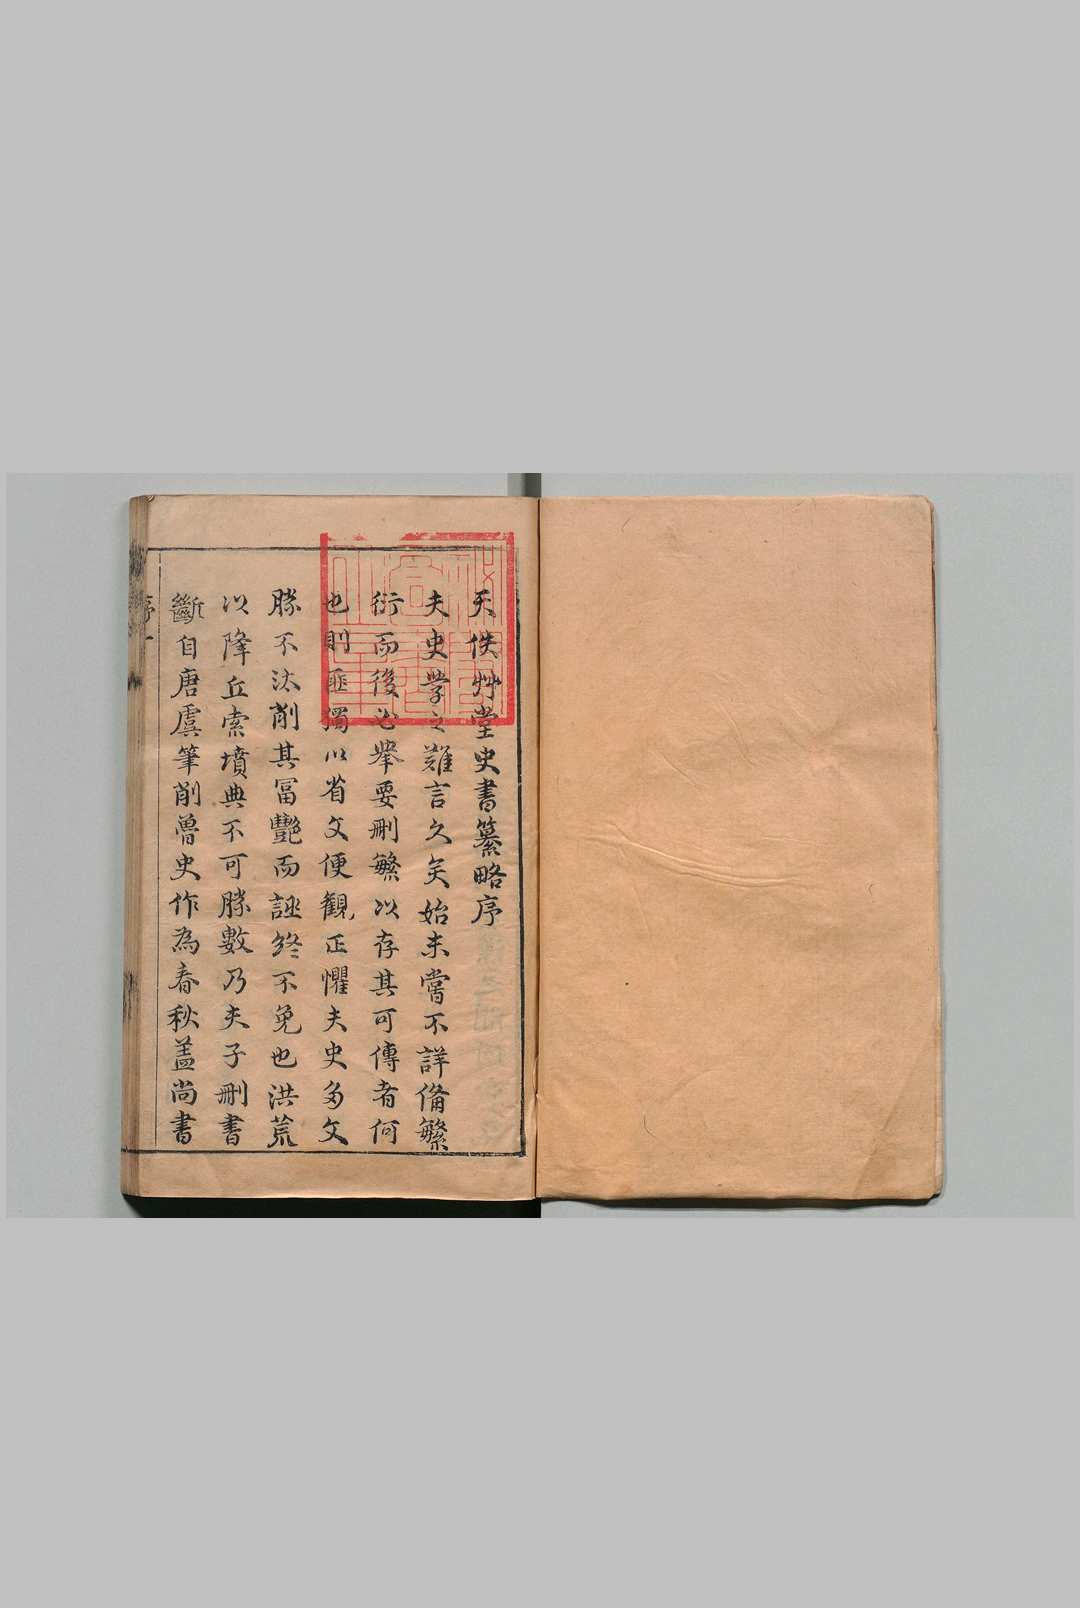 天佚艸堂史書纂略序
夫史學之難言久矣始未嘗不詳備繁
衍而後必舉要刪繁以存其可傳者何
也則匪獨以省文便觀正懼夫史多文
勝不汰削其冨豔而誣終不免也洪荒
以降丘索墳典不可勝數乃夫子刪書
斷自唐虞筆削魯史作為春秋蓋尚書
序一